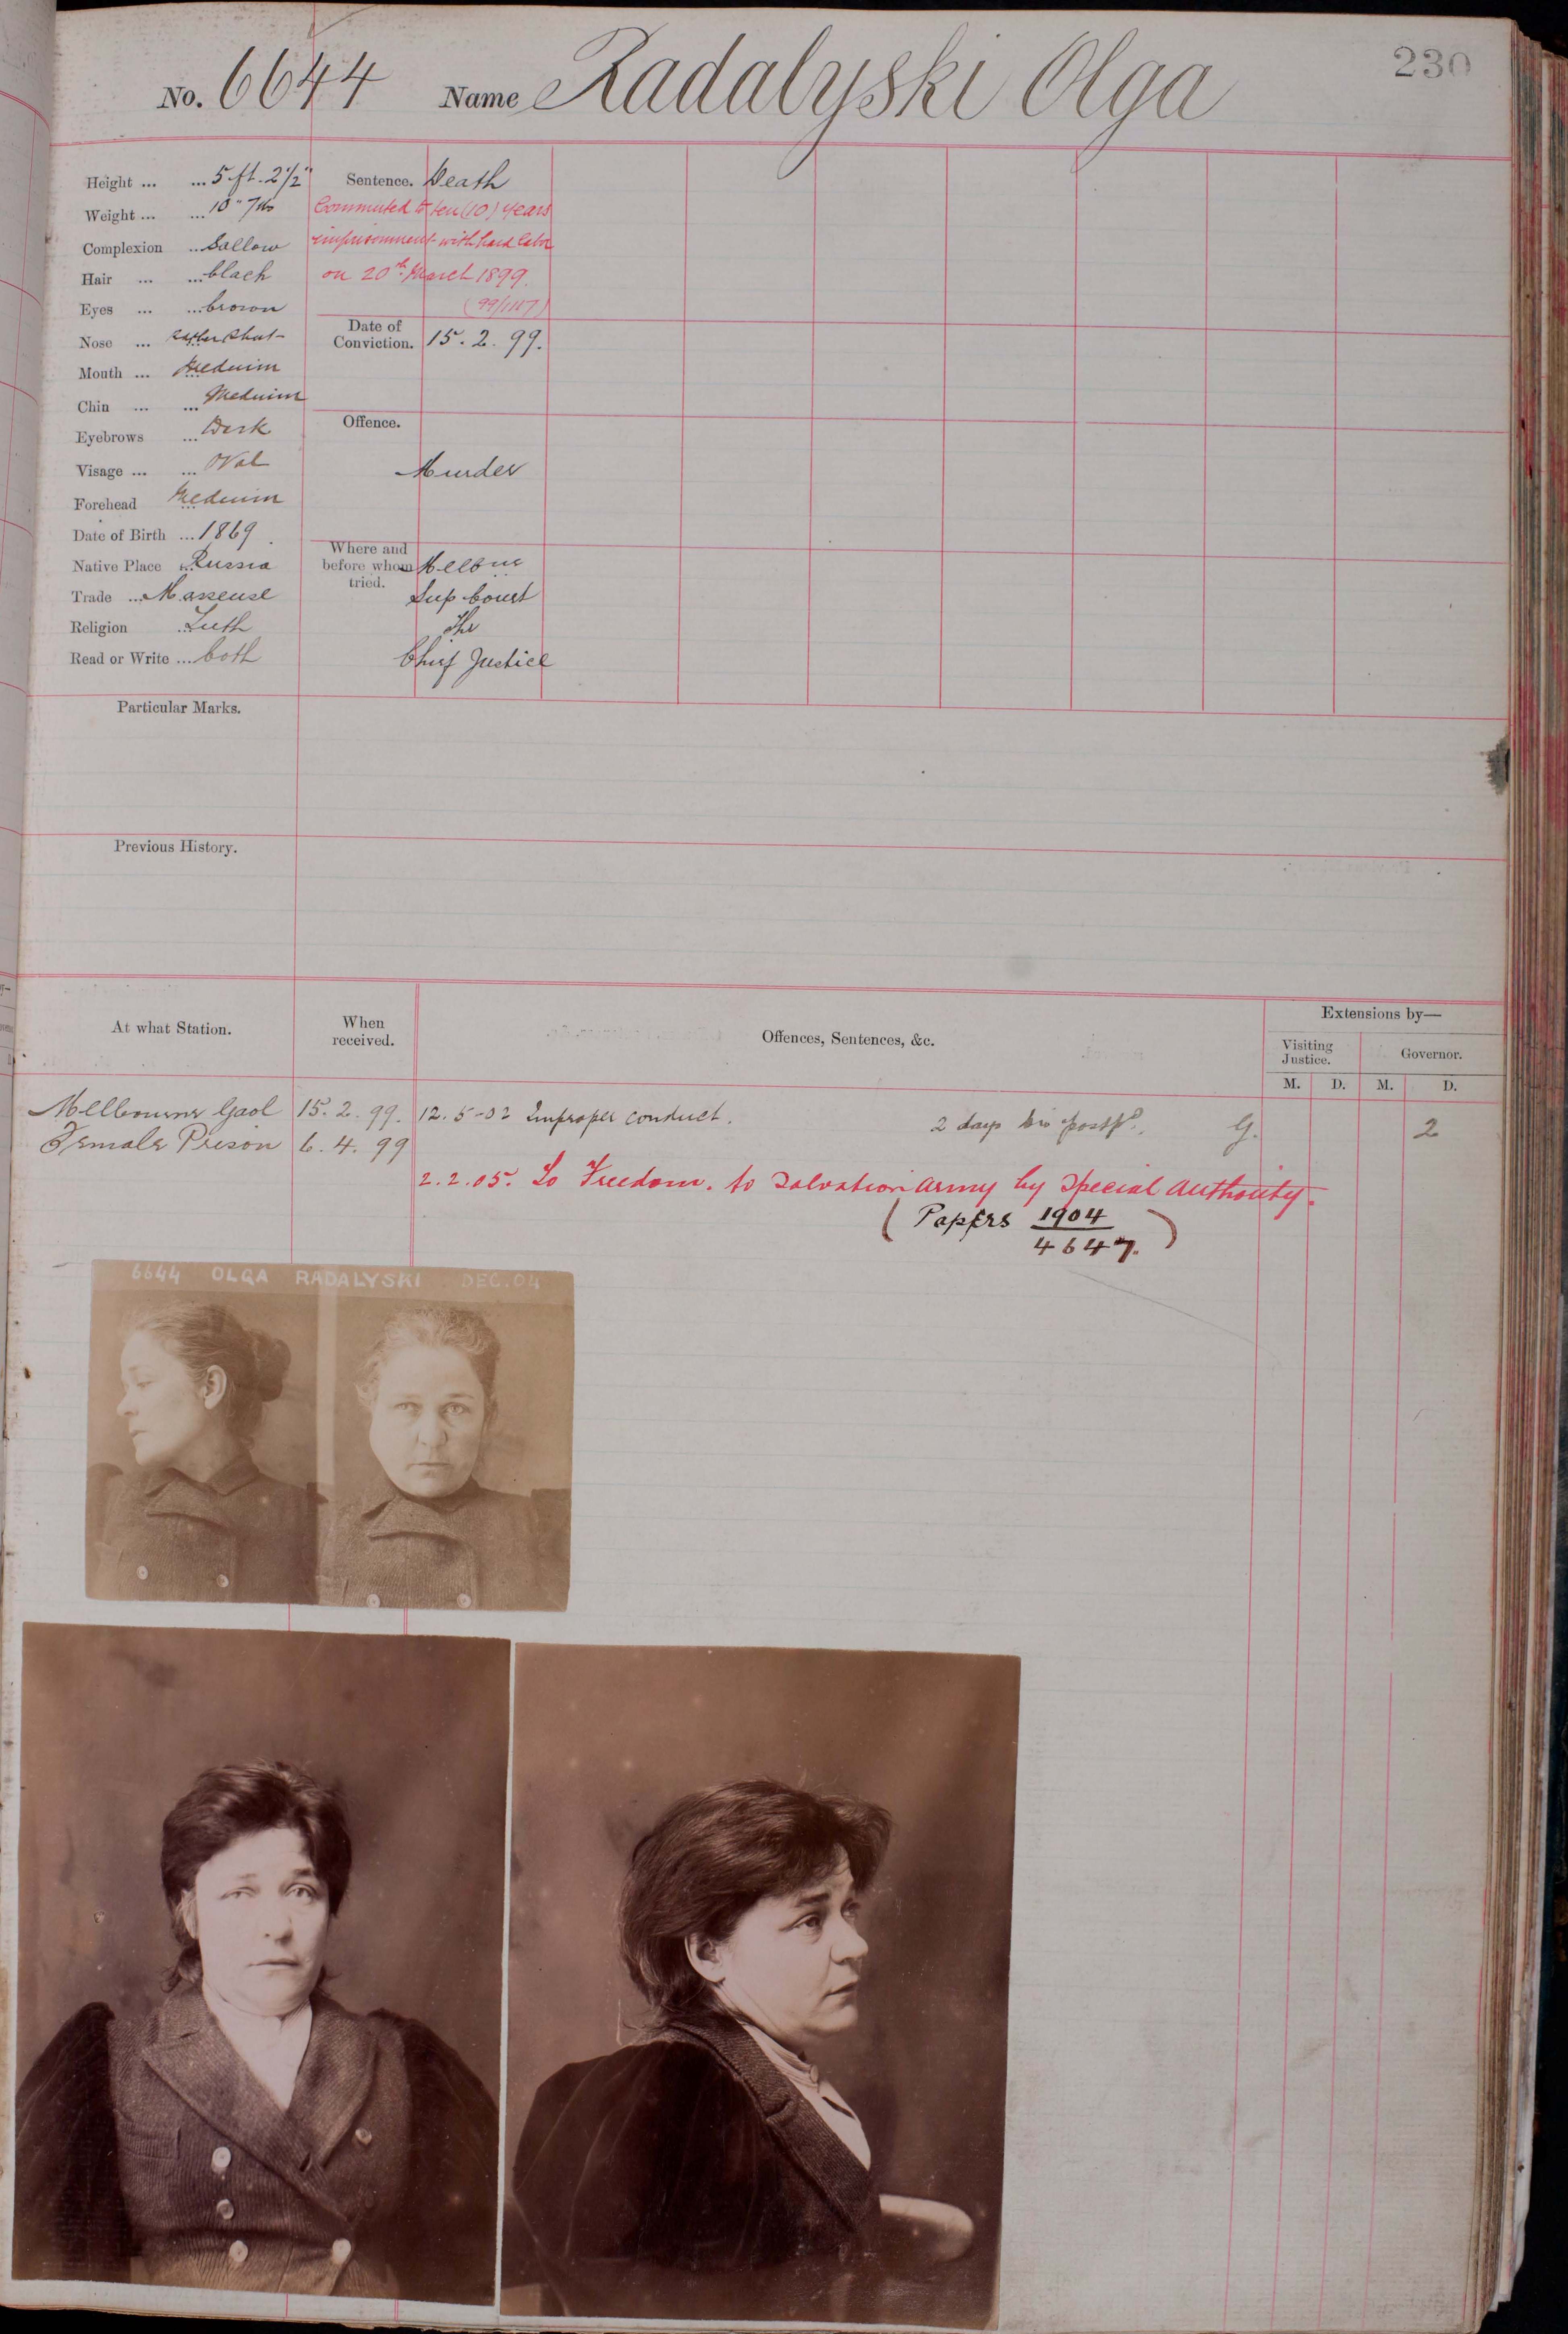 230
No. 6644 Name Radalyski Olga
Height ... ... 5 ft. 2 1/2"
Weight ... ... 10" 7 lbs
Complexion ... Sallow
Hair ... ... black
Eyes ... ... brown
Nose ... rather short
Mouth ... Meduim
Chin ... ... Meduim
Eyebrows ... Dark
Visage ... ... Oval
Forehead ... Meduim
Date of Birth ... 1869.
Native Place ... Russia
Trade ... Masseuse
Religion ... Luth
Read or Write ... both
Sentence. Death
Commuted to ten (10) years
imprisonment with hard labor
on 20th March 1899.
(99/1187)
Date of
Conviction. 15. 2. 99.
Offence.
Murder
Where and
before whom
tried.
Melbne
Sup Court
The
Chief Justice
Particular Marks.
Previous History.
At what Station.
When
received.
Offences, Sentences, &c.
Extensions by—
Visiting
Justice.
Governor.
M. D. M. D.
Melbourne Gaol 15. 2. 99. 12. 5-02 Improper conduct. 2 days G. 2
Female Prison 6. 4. 99
2. 2. 05. To Freedom. to Salvation Army by Special Authority.
(Papers 1904
4647.)
6644 OLGA RADALYSKI DEC. 04